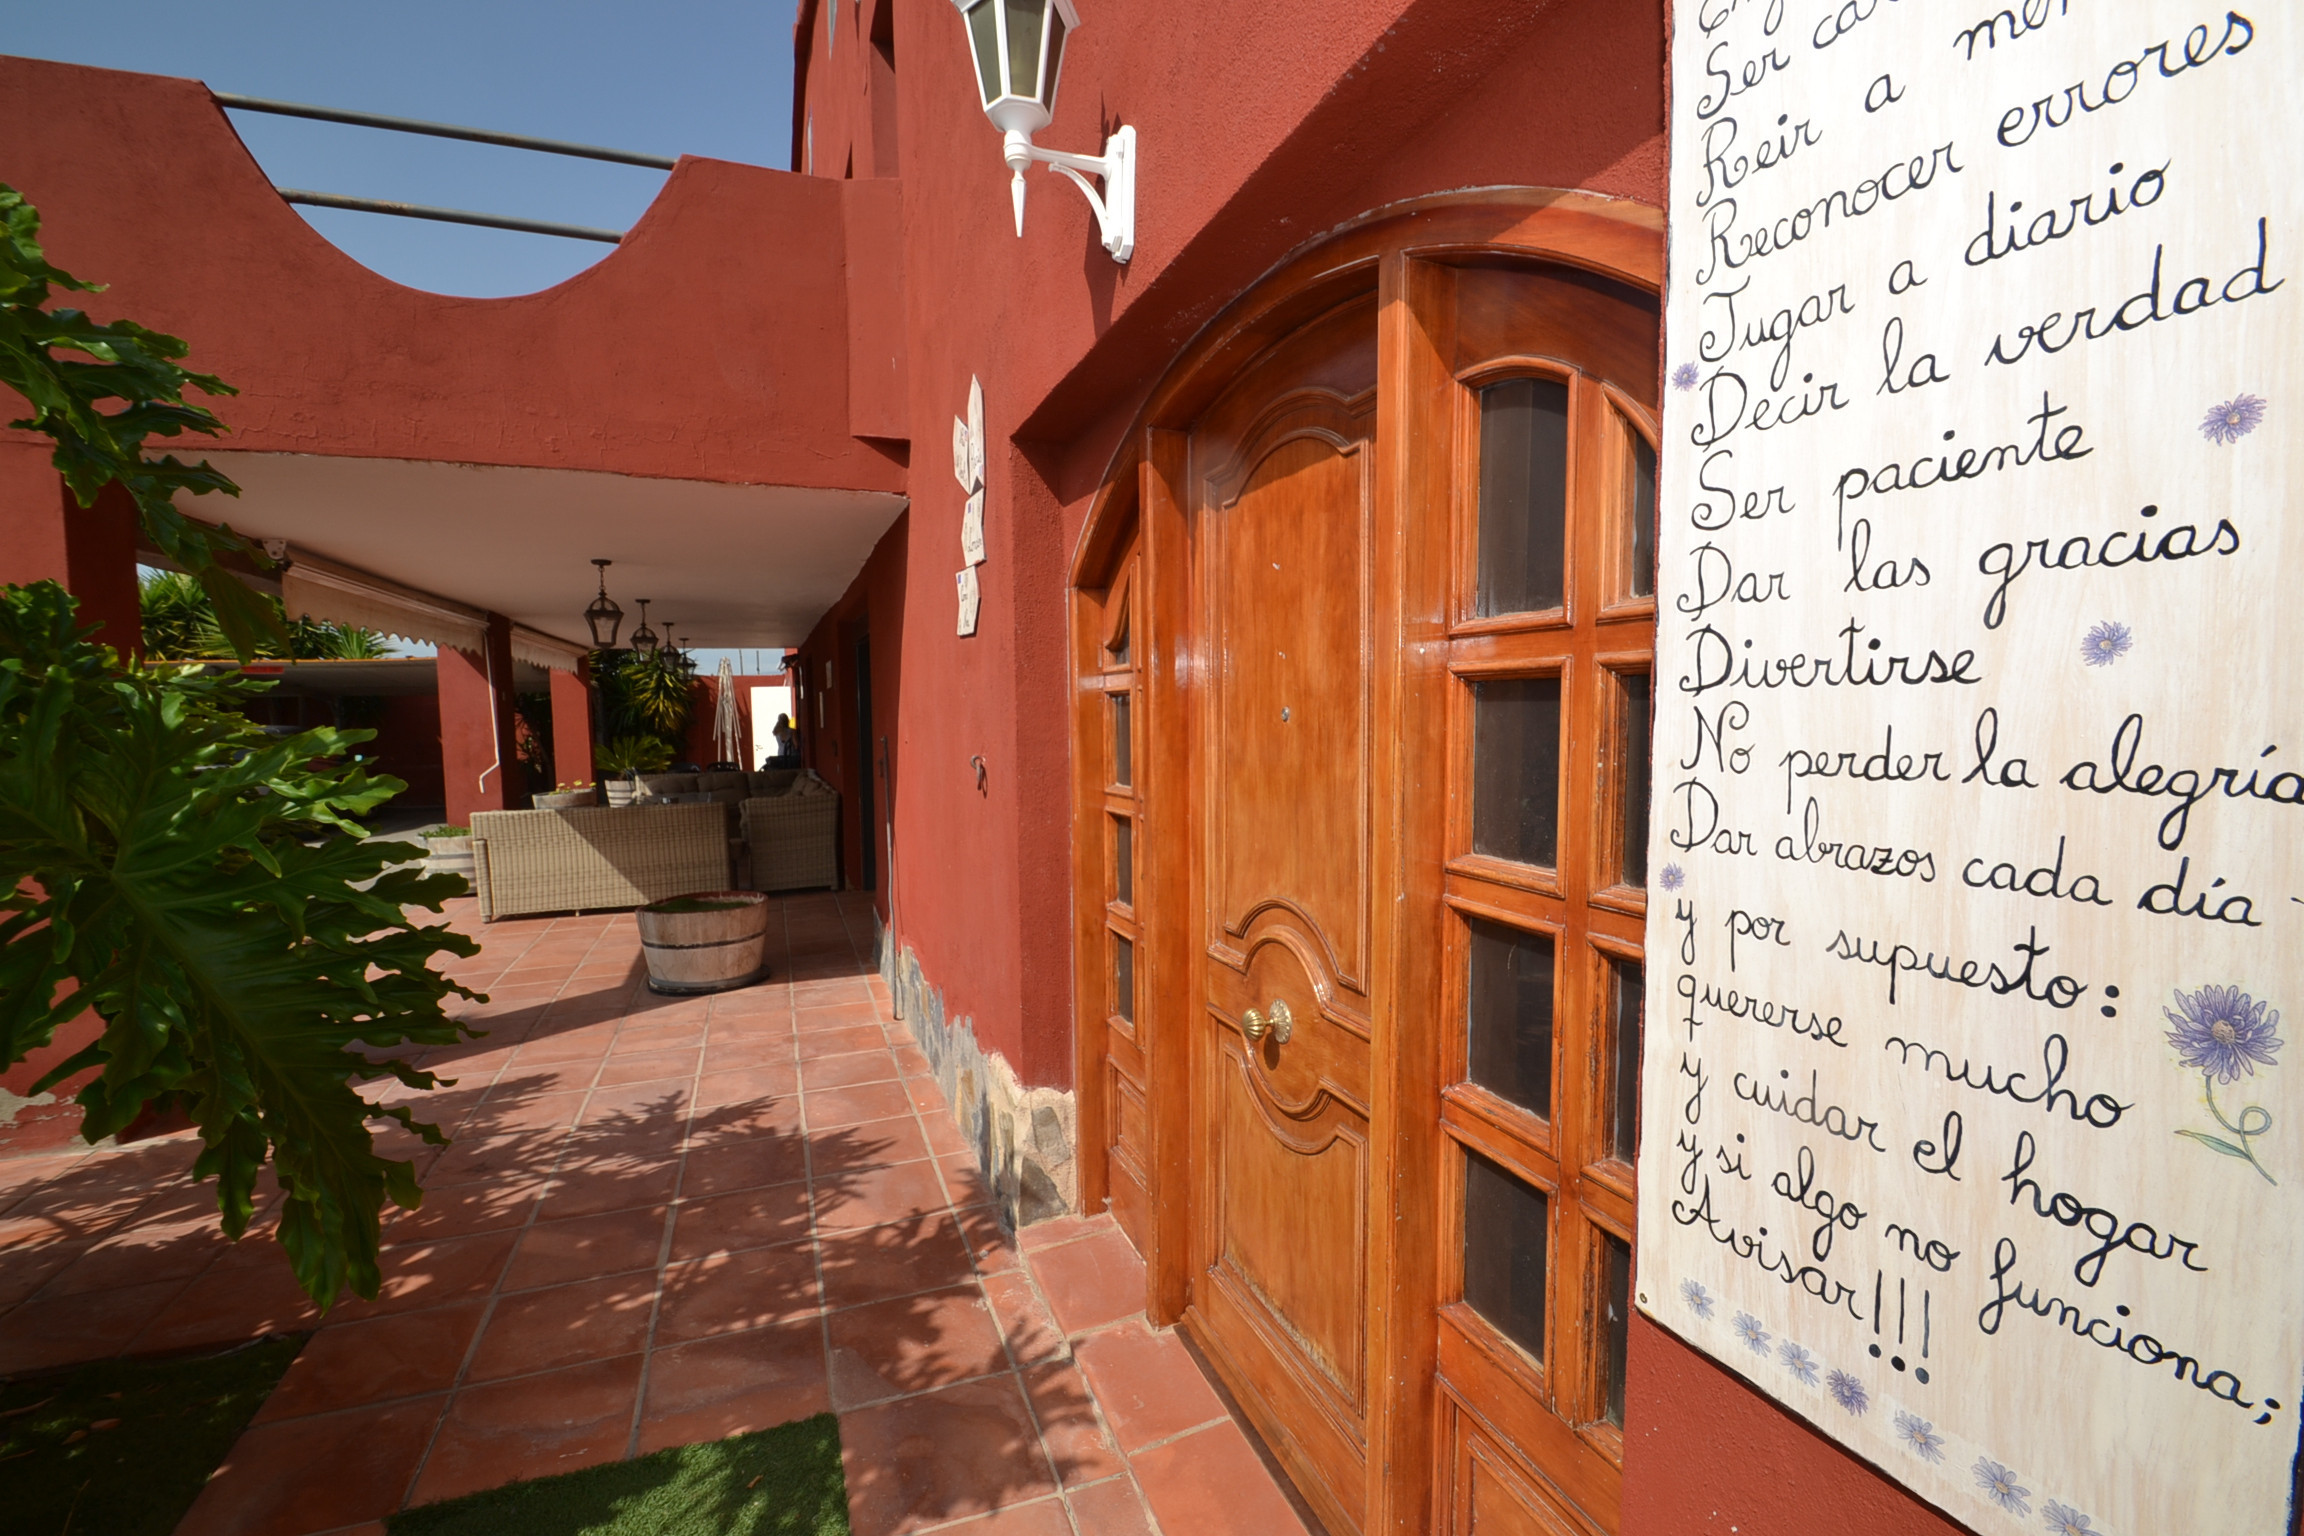 Ser
Reir a
Reconocer errores
Jugar a diario
Decir la verdad
Ser paciente
Dar las gracias
Divertirse
No perder la alegría
Dar abrazos cada día
y por supuesto:
quererse mucho
y cuidar el hogar
y si algo no funciona;
Avisar!!!